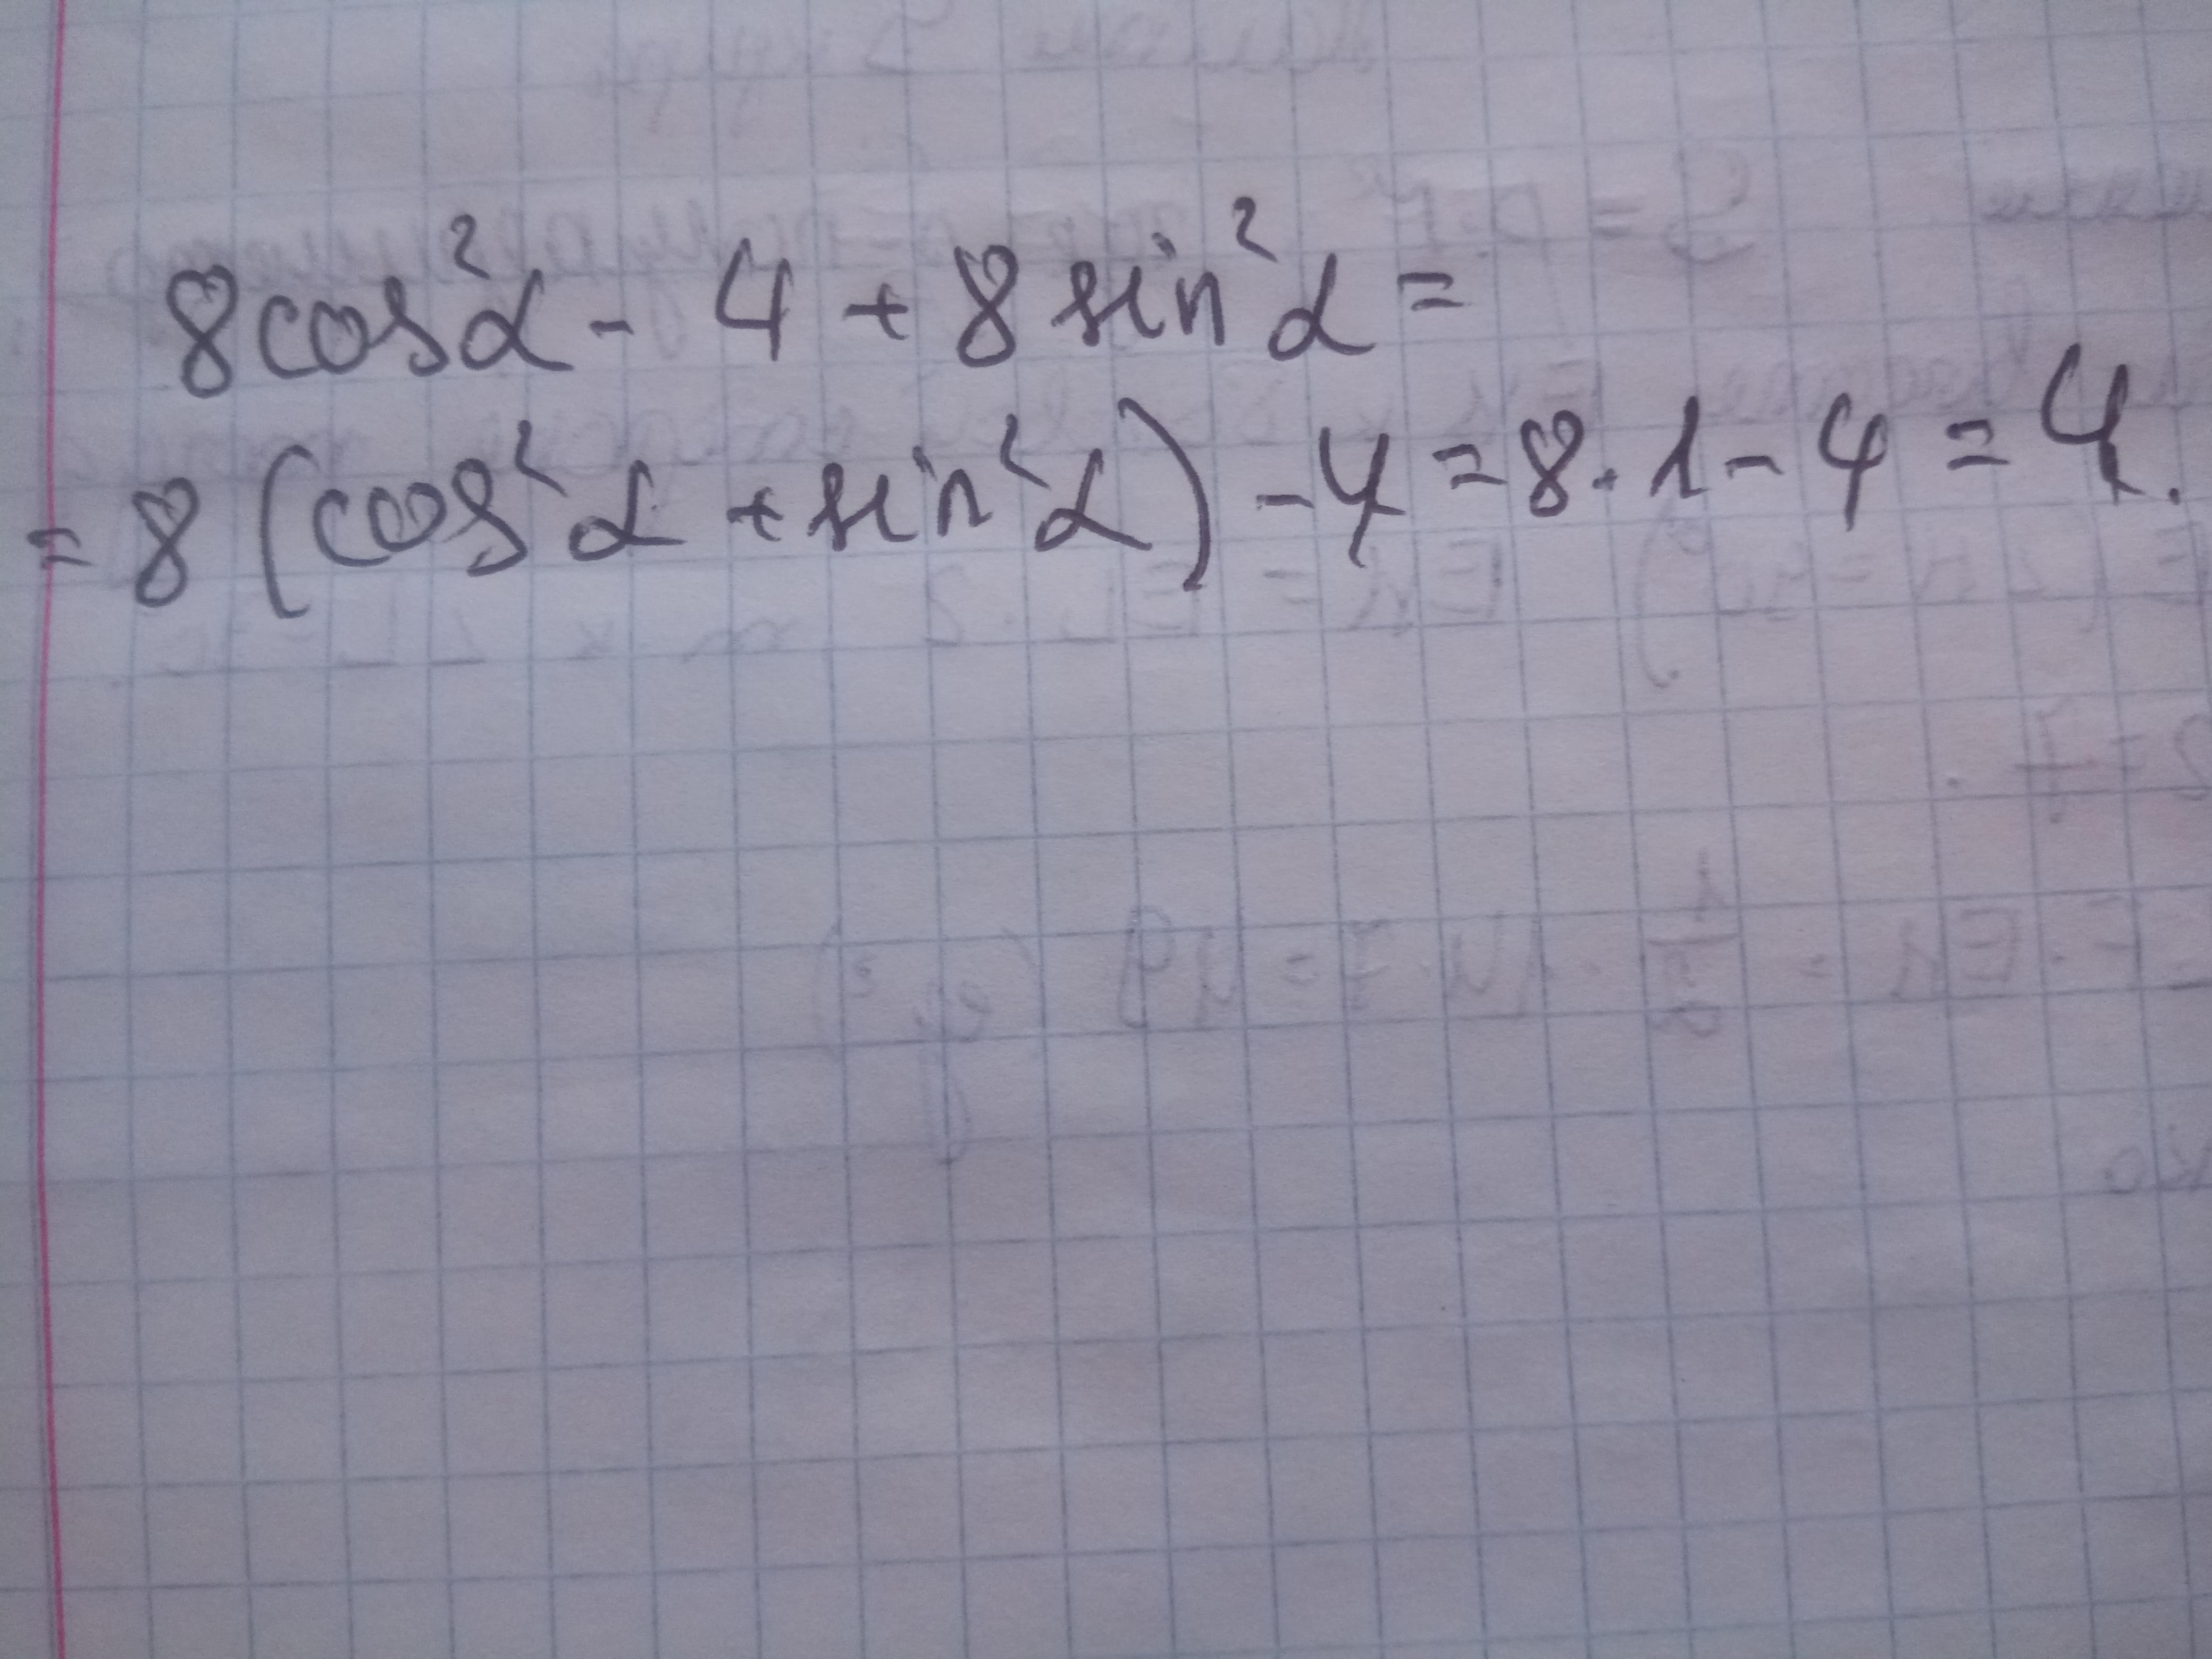 8cos²α - 4 + 8 sin²α =
= 8 (cos²α + sin²α) - 4 = 8 · 1 - 4 = 4.